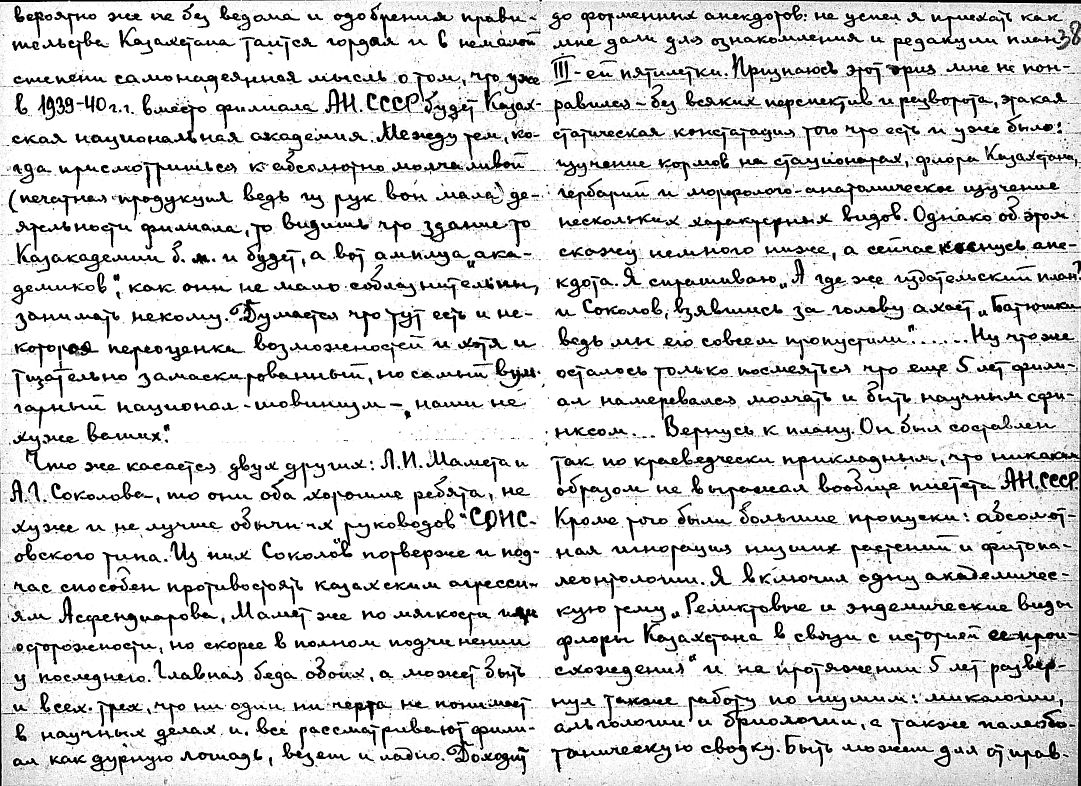 вероятно же не без ведома и одобрения прави-
тельства Казахстана таится гордая и в немалой
степени самонадеянная мысль о том, что уже
в 1939-40 г.г. вместо филиала АН.СССР будет Казах-
ская национальная академия. Между тем, ко-
гда присмотришься к абсолютно молчаливой
(печатная продукция ведь из рук вон мала) де-
ятельности филиала, то видишь что здание то
Казакадемии б.м. и будет, а вот амплуа „ака-
демиков", как они не мало соблазнительны,
занимать некому. Думается что тут есть и не-
которая переоценка возможностей и хотя и
тщательно замаскированный, но самый вуль-
гарный национал-шовинизм – „наши не
хуже ваших".
Что же касается двух других: Л.И. Мамета и
А.Г. Соколова, то они оба хорошие ребята, не
хуже и не лучше обычных руководов
овского типа. Из них Соколов потверже и под-
час способен противостоять казахским агресси-
ям Асфендиарова, Мамет же по мягкости или
осторожности, но скорее в полном подчинении
у последнего. Главная беда обоих, а может быть
и всех трех, что ни один ни черта не понимает
в научных делах и все рассматривают фили-
ал как дурную лошадь, везет и ладно. Доходит
38
до форменных анекдотов: не успел я приехать как
мне дали для ознакомления и редакции план
III-ей пятилетки. Признаюсь этот приз мне не пон-
равился – без всяких перспектив и разворота, этакая
статическая констатация того что есть и уже было:
изучение кормов на стационарах, флора Казахстана,
гербарий и морфолого-анатомическое изучение
нескольких характерных видов. Однако об этом
скажу немного ниже, а сейчас коснусь ане-
кдота. Я спрашиваю „А где же издательский план?"
и Соколов, взявшись за голову ахает „Батюшки
ведь мы его совсем пропустили"...... Ну что же
осталось только посмеяться что еще 5 лет фили-
ал намеревался молчать и быть научным сфи-
нксом... Вернусь к плану. Он был составлен
так по краеведчески прикладным, что никаким
образом не выражал вообще пиетета АН.СССР.
Кроме того были большие пропуски: абсолют-
ная игнорация низших растений и фитопа-
леонтологии. Я включил одну академичес-
кую тему „Реликтовые и эндемические виды
флоры Казахстана в связи с историей ее прои-
схождения" и на протяжении 5 лет развер-
нул также работу по низшим: микологии,
альгологии и бриологии, а также палеобо-
таническую сводку. Быть может для отправ-